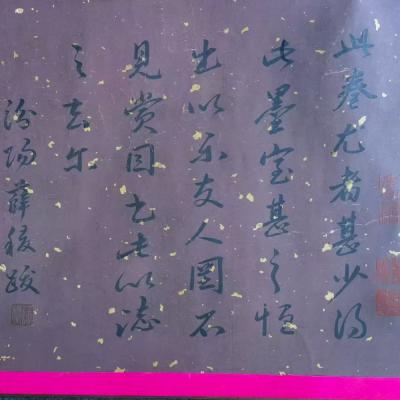 此卷尤者甚少得
此墨宝甚之恒
出以示友人图不
见赏因书此以志
之云尔
汾阳薛